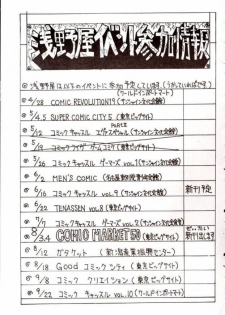 浅野屋イベント参加情報
◎ 浅野屋は以下のイベントに参加予定しています(うかっていればです)
(ワールドインポートマート)
◎ 4/28 COMIC REVOLUTION19 (サンシャイン文化会館)
◎ 5/4.5 SUPER COMIC CITY 5 (東京ビッグサイト)
PART II
◎ 5/12 コミックキャッスル エヴァスペシャル(サンシャイン文化会館)
◎ 5/19 コミックライブ ゲームコミケ(東京ビッグサイト)
◎ 5/26 コミックキャッスル ゲーマーズ vol.1 (サンシャイン文化会館)
◎ 6/2 MEN'S COMIC
◎ 6/16 コミックキャッスル vol.9 (サンシャイン文化会館) 新刊予定
◎ 6/22 TENASSEN vol.8 (東京ビッグサイト)
◎ 7/7 コミックキャッスル ゲーマーズ vol.2 (サンシャイン文化会館)
◎ 8/3.4 COMIC MARKET 50 (東京ビッグサイト) 新刊出します
◎ 8/12 ガタケット (新潟産業振興センター)
◎ 8/18 Good コミックシティ (東京ビッグサイト)
◎ 9/8 コミック クリエイション (東京ビッグサイト)
◎ 9/22 コミック キャッスル vol.10 (ワールドインポートマート)